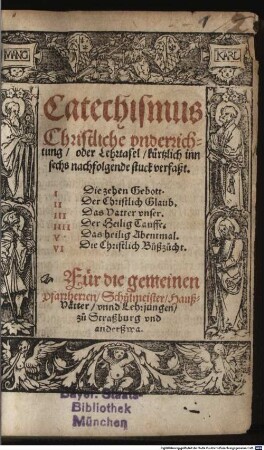 MANG
KARL
Catechismus
Christliche vnderrich-
tung / oder Lehrtafel / kürtzlich inn
sechs nachfolgende stuck verfaßt.
I Die zehen Gebott.
II Der Christlich Glaub.
III Das Vatter vnser.
IIII Der Heilig Tauffe.
V Das heilig Abentmal.
VI Die Christlich Bůßzucht.
Für die gemeinen
Pfarrherren / Schůlmeister / Hauß-
vätter / vnnd Lehrjungen /
zů Straßburg vnd
anderßwa.
Bayer. Staats-
Bibliothek
München